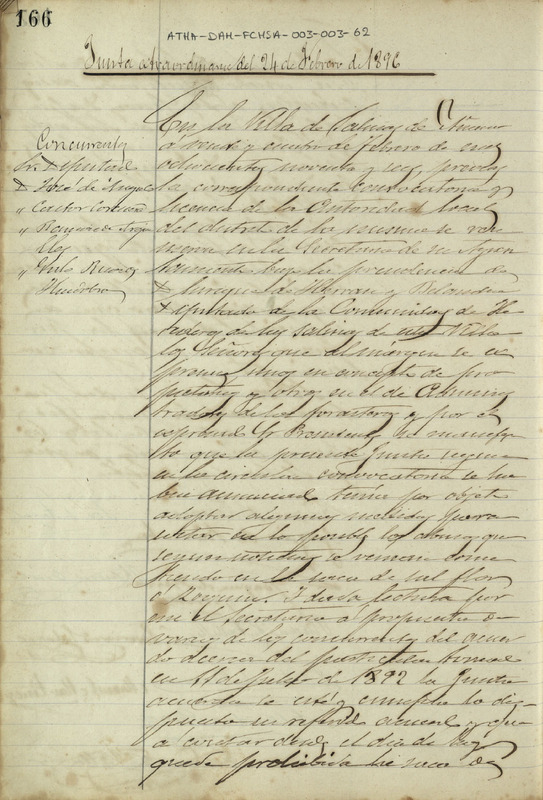 166
ATHA-DAH-FCHSA-003-003-62
Junta extraordinaria del 24 de Febrero de 1896
Concurrentes
Sres Diputad
D José de Angulo
" Castor
"
"
En la Villa de Salinas de Añana
a veinte y cuatro de febrero de mil
ochocientos noventa y seis, previa
la correspondiente convocatoria y
licencia de la autoridad local
del distrito de la misma se reu
nieron en la Secretaria de su Ayun
tamiento bajo la presidencia de
D Enrique de Herran y
Diputado de la Comunidad de He
rederos de las salinas de esta Villa
los Señores que al margen se es
presan, unos en concepto de pro
pietarios y otros en el de Adminis
tradores de los forasteros y por el
espresado Sr Presidente se manifes
to que la presente Junta segun
en la circular convocatoria se ha
bia anunciado tenia por objeto
adoptar algunas medidas para
evitar en lo posible los abusos que
segun noticias se venian come
tiendo en la saca de sal flor
o Espuma. I dada lectura por
mi el Secretario a propuesta de
varios de los concurrentes del acuer
do acerca del particular
en 1º de Julio de 1892 la Junta
acuerda se esté y cumpla lo dis-
puesto en referido acuerdo y que
a contar desde el dia de hoy
queda prohibida la saca de